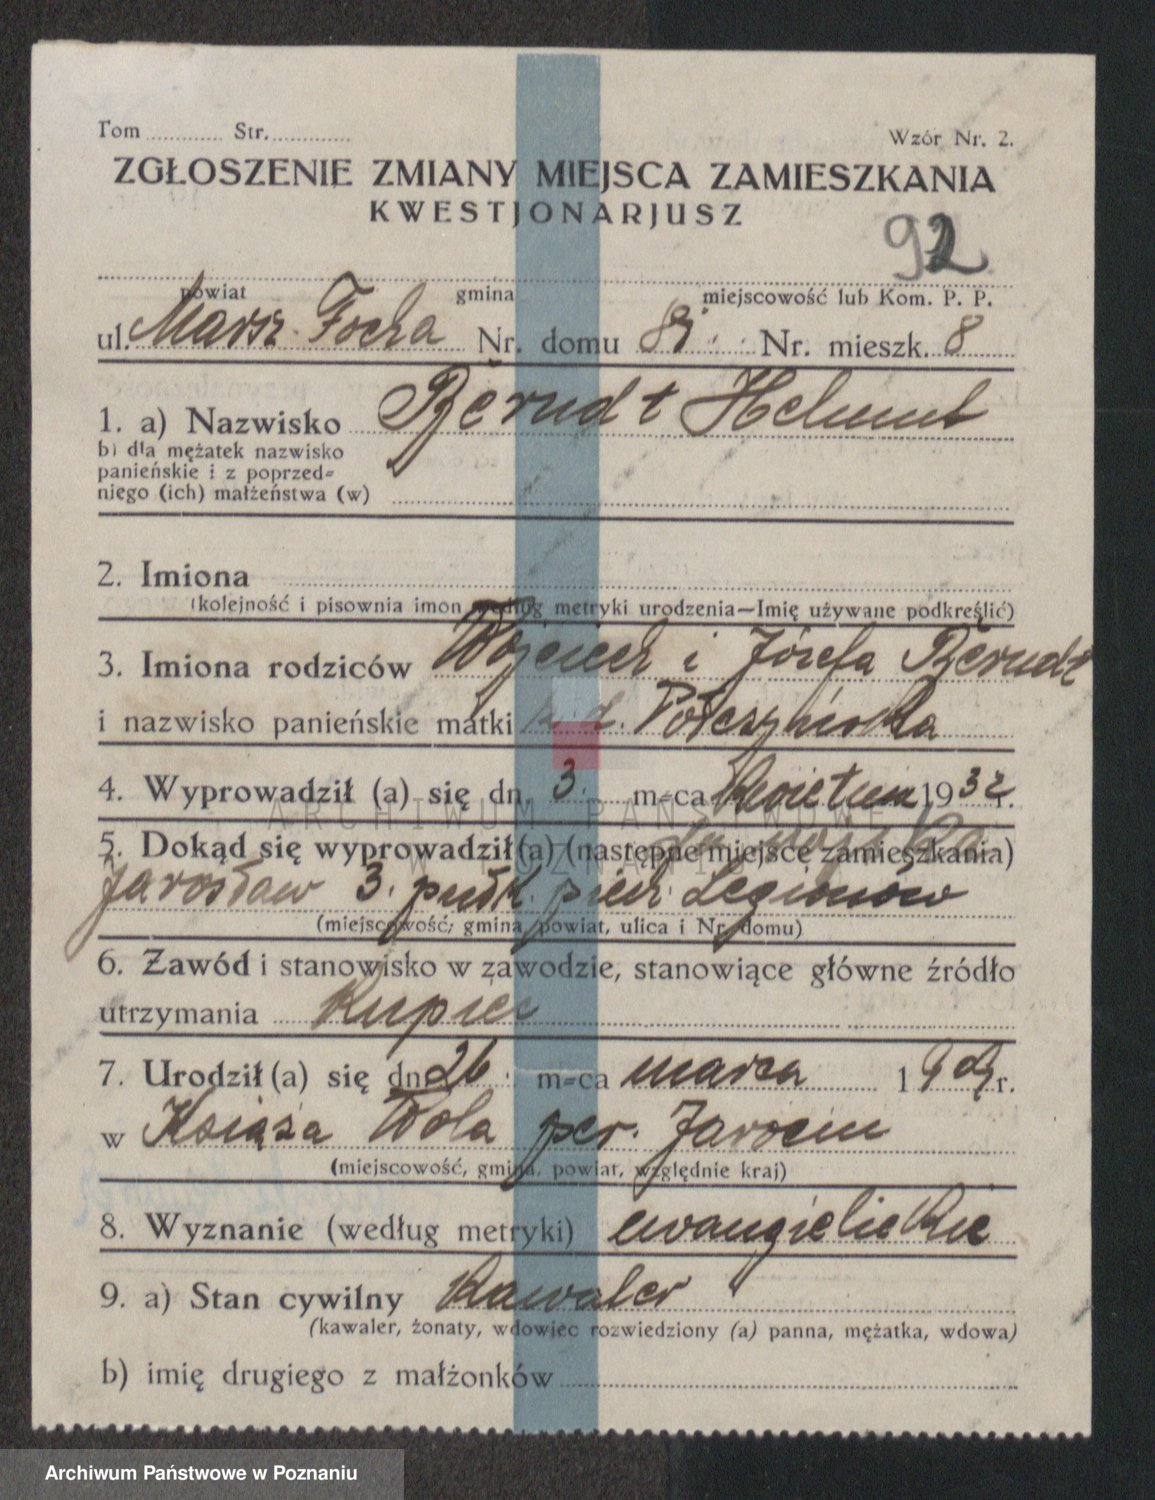 Tom ............ Str. ............
Wzór Nr. 2.
ZGŁOSZENIE ZMIANY MIEJSCA ZAMIESZKANIA
KWESTJONARJUSZ
92
powiat gmina miejscowość lub Kom. P. P.
ul. Marsz. Focha Nr. domu Nr. mieszk. 8
1. a) Nazwisko Berndt Helmut
b) dla mężatek nazwisko
panieńskie i z poprzed=
niego (ich) małżeństwa (w)
2. Imiona
(kolejność i pisownia imon według metryki urodzenia—Imię używane podkreślić)
3. Imiona rodziców Wojciech i Józefa Berndt
i nazwisko panieńskie matki z d.
4. Wyprowadził (a) się dn. 3. m=ca kwietnia 1932 r.
5. Dokąd się wyprowadził (a) (następne miejsce zamieszkania)
do wojska
Jarosław 3. pułk. piech. Legionów
(miejscowość, gmina, powiat, ulica i Nr. domu)
6. Zawód i stanowisko w zawodzie, stanowiące główne źródło
utrzymania Kupiec
7. Urodził (a) się dn 26 m=ca marca 1909 r.
w Książa Wola pow. Jarocin
(miejscowość, gmina, powiat, względnie kraj)
8. Wyznanie (według metryki) ewangielickie
9. a) Stan cywilny Kawaler
(kawaler, żonaty, wdowiec rozwiedziony (a) panna, mężatka, wdowa)
b) imię drugiego z małżonków
ARCHIWUM PAŃSTWOWE
W POZNANIU
Archiwum Państwowe w Poznaniu